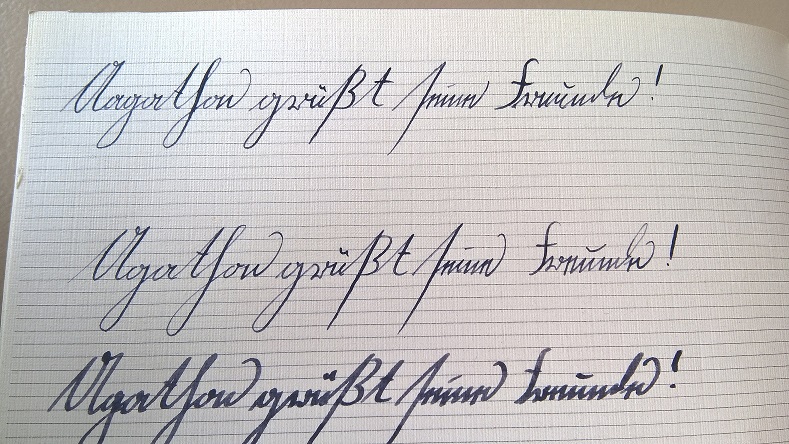 Aagathon grüßt seine Freunde!
Agathon grüßt seine Freunde!
Agathon grüßt seine Freunde!